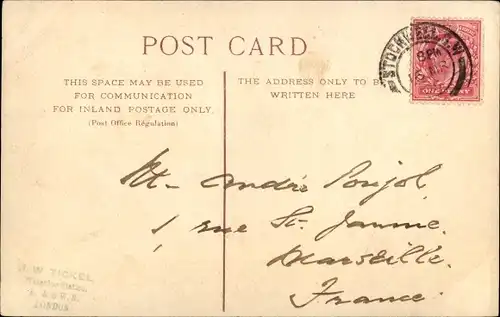 POST CARD
THIS SPACE MAY BE USED
FOR COMMUNICATION
FOR INLAND POSTAGE ONLY.
(Post Office Régulation)
THE ADDRESS ONLY TO BE
WRITTEN HERE
STOCKWELL S.W.
ONE PENNY
Mt- André Poujol
1 rue St. Jaume
Marseille.
France.
J. W. TICKEL
LONDON